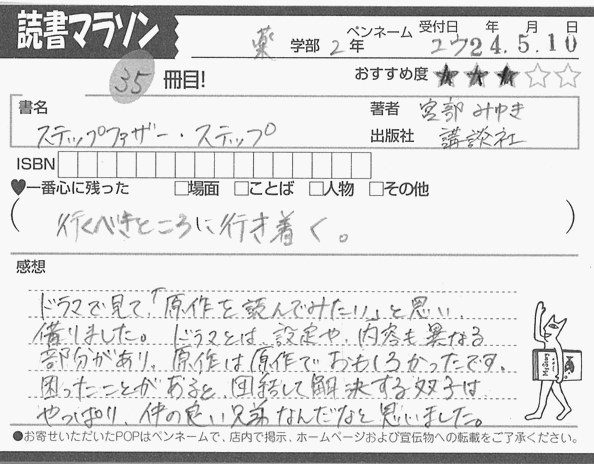 読書マラソン
薬 学部 2年 ペンネーム ユウ 受付日 年 月 日 24.5.10
35 冊目! おすすめ度 ★★★☆☆
書名 ステップファザー・ステップ
著者 宮部みゆき
出版社 講談社
ISBN
♥一番心に残った □場面 □ことば □人物 □その他
(行くべきところに行き着く。)
感想
ドラマで見て、「原作を読んでみたい」と思い、
借りました。ドラマとは、設定や、内容も異なる
部分があり、原作は原作でおもしろかったです。
困ったことがあると、団結して解決する双子は
やっぱり、仲の良い兄弟なんだなと思いました。
●お寄せいただいたPOPはペンネームで、店内で掲示、ホームページおよび宣伝物への転載をご了承ください。